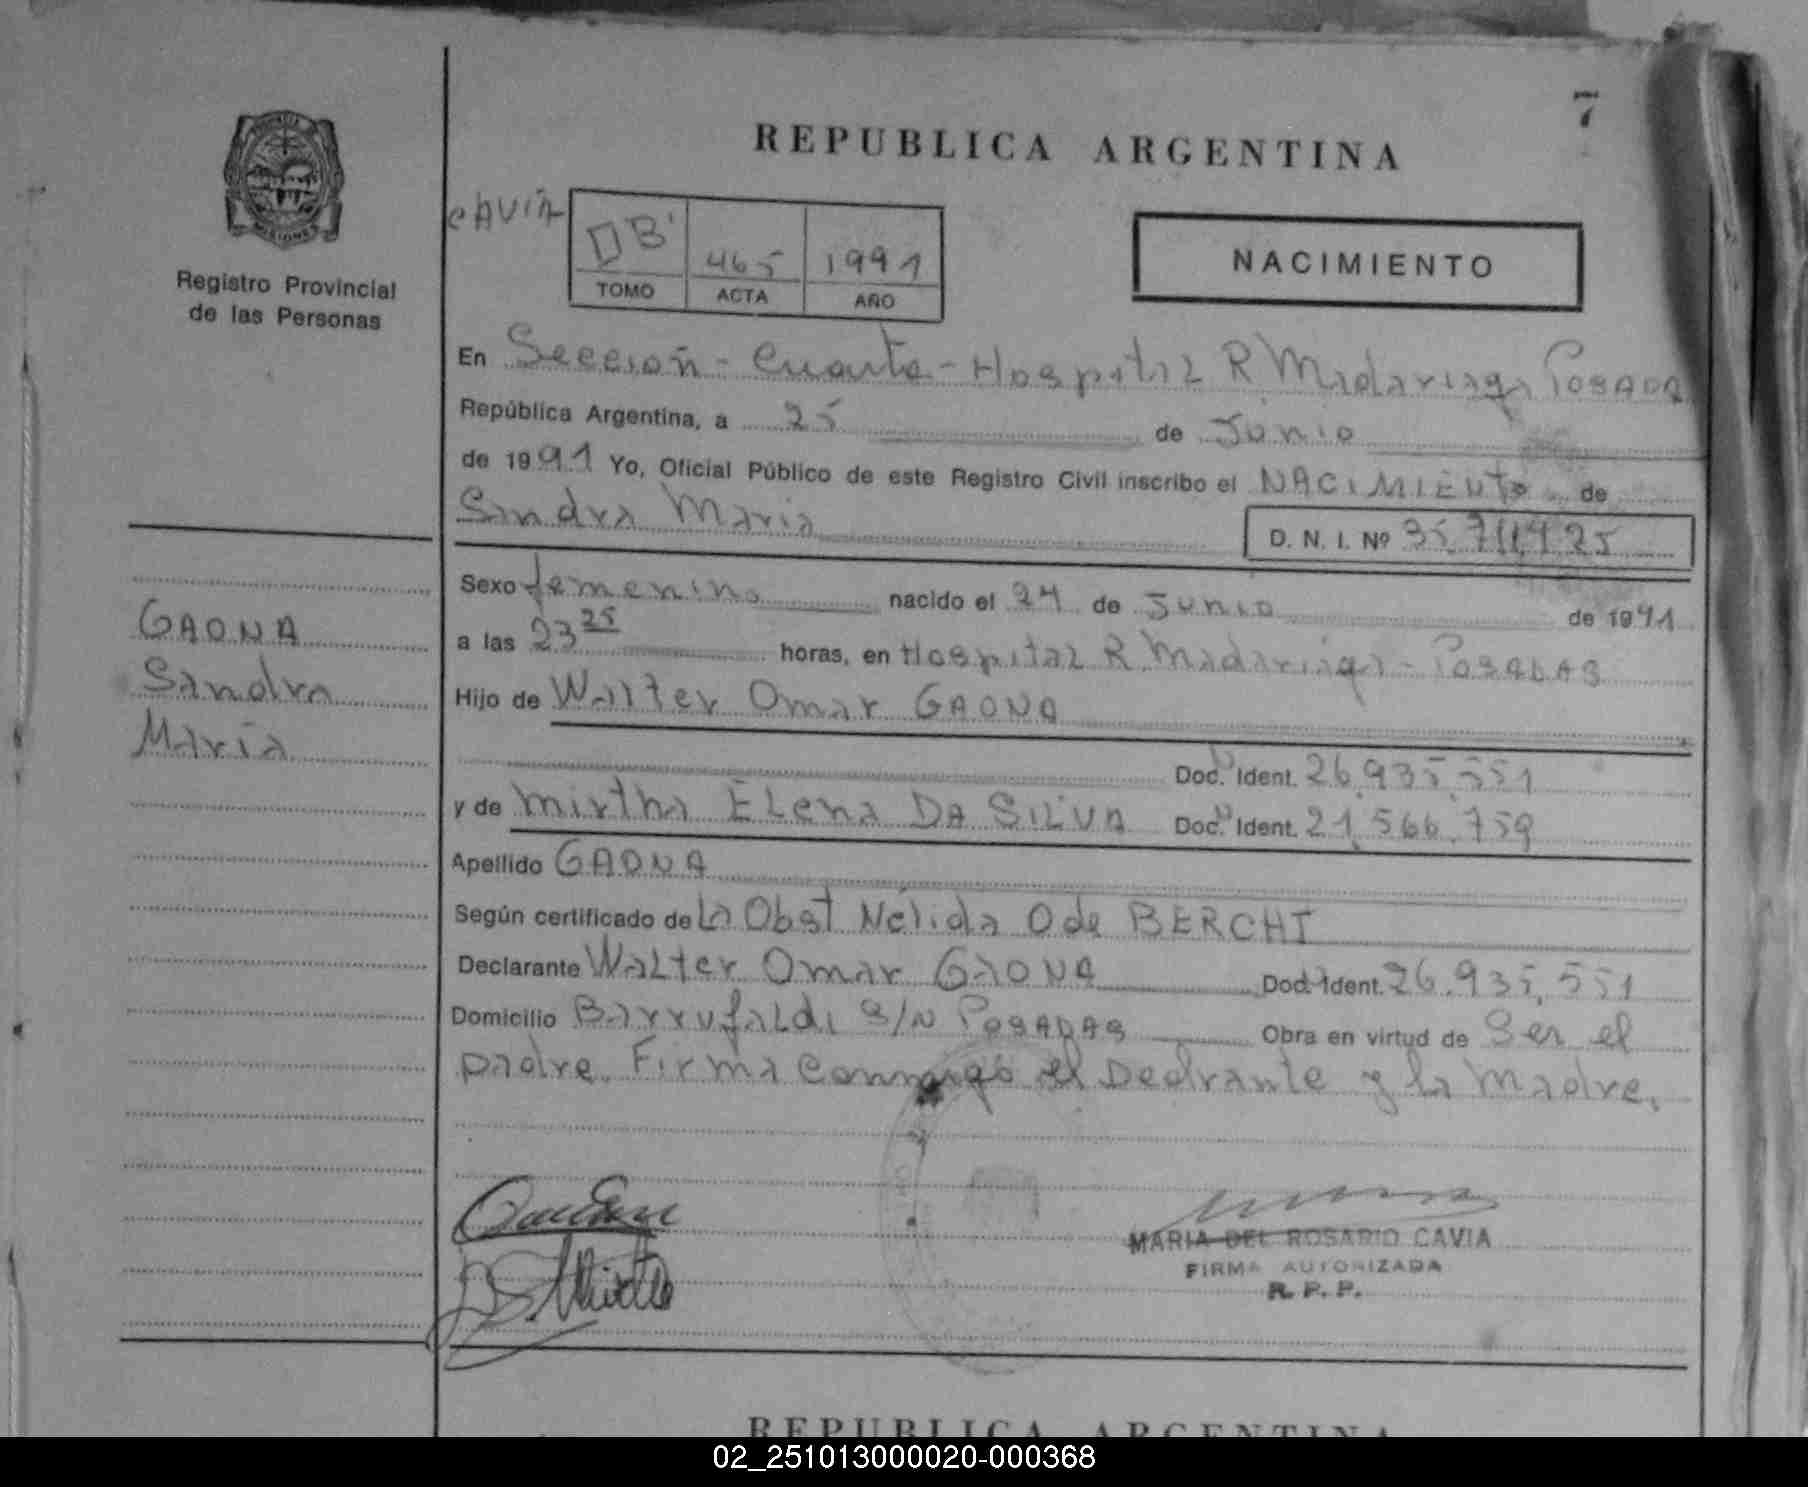 7
REPUBLICA ARGENTINA
CAVIA
DB' 465 1991
TOMO ACTA AÑO
NACIMIENTO
MISIONES
Registro Provincial
de las Personas
En Sección - Cuarta - Hospital R Madariaga POSADA
República Argentina, a 25 de Junio
de 1991 Yo, Oficial Público de este Registro Civil inscribo el NACIMIENTO de
Sandra Maria
D. N. I. Nº
Sexo femenino nacido el 24 de Junio de 1991
a las 23 25 horas, en Hospital R Madariaga - POSADAS
Hijo de Walter Omar GAONA
Doc. Ident. 26.935.551
y de Mirtha ELena DA SILVA Doc. Ident. 21.566.759
Apellido GAONA
Según certificado de La Obst Nélida O de BERCHT
Declarante WaLter Omar GAONA Doc. Ident. 26.935.551
Domicilio BarrufaLdi S/N POSADAS Obra en virtud de Ser el
padre. Firma Conmigo el Declrante y la Madre.
GAONA
Sandra
Maria
MARIA DEL ROSARIO CAVIA
FIRMA AUTORIZADA
R. P. P.
REPUBLICA ARGENTINA
02_251013000020-000368